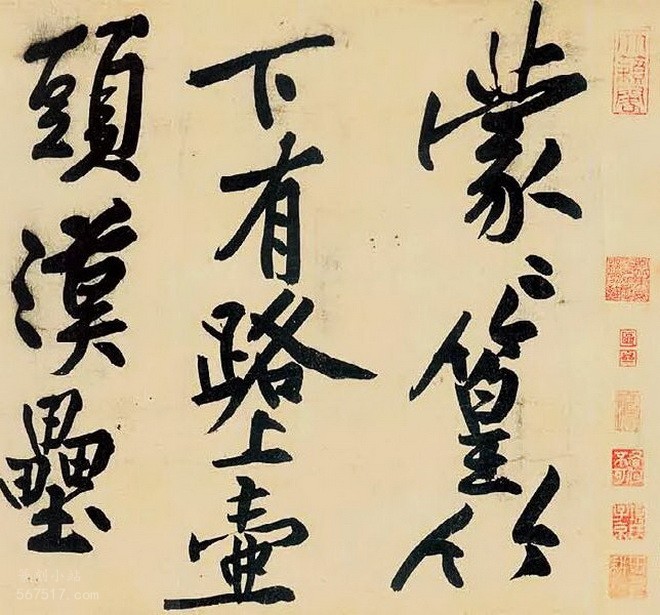 蒙〻篁竹
下有路上壺
頭漢壘
567517.com